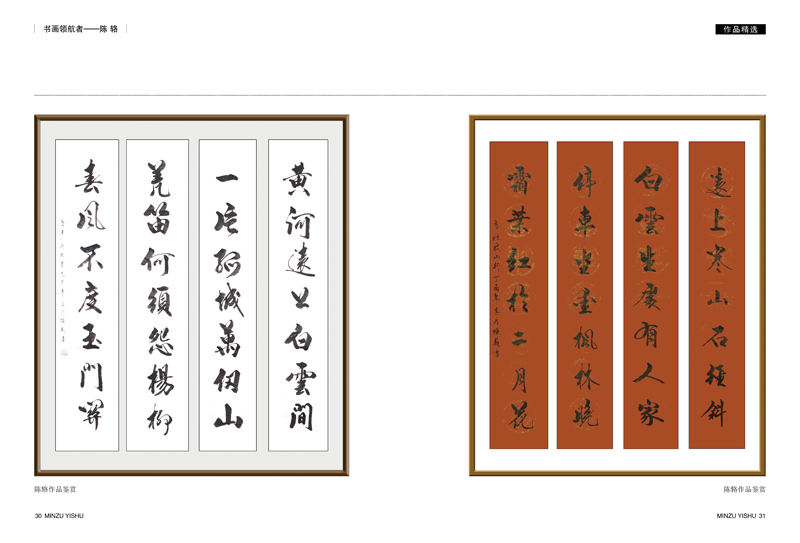 书画领航者——陈 辂
作品精选
黄河遠上白雲間
一片孤城萬仞山
羌笛何須怨楊柳
春風不度玉門關
遠上寒山石徑斜
白雲生處有人家
停車坐愛楓林晚
霜葉紅於二月花
陈辂作品鉴赏
陈辂作品鉴赏
30 MINZU YISHU
MINZU YISHU 31